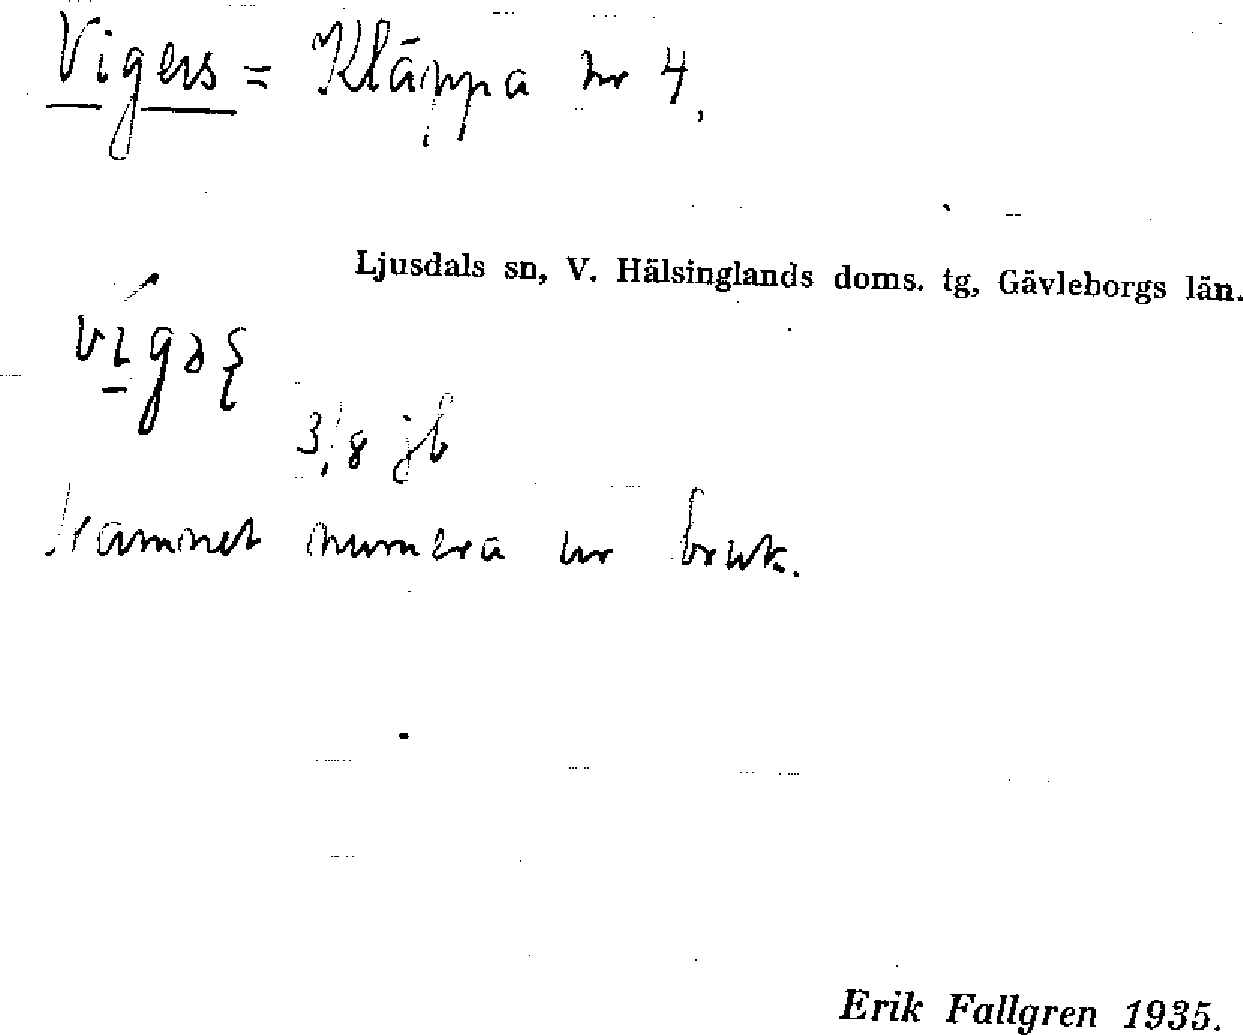 Vigers = Kläppa nr 4,
Ljusdals sn, V. Hälsinglands doms. tg, Gävleborgs län.
vı̄gəʂ
3/8 jb
Namnet numera ur bruk.
Erik Fallgren 1935.